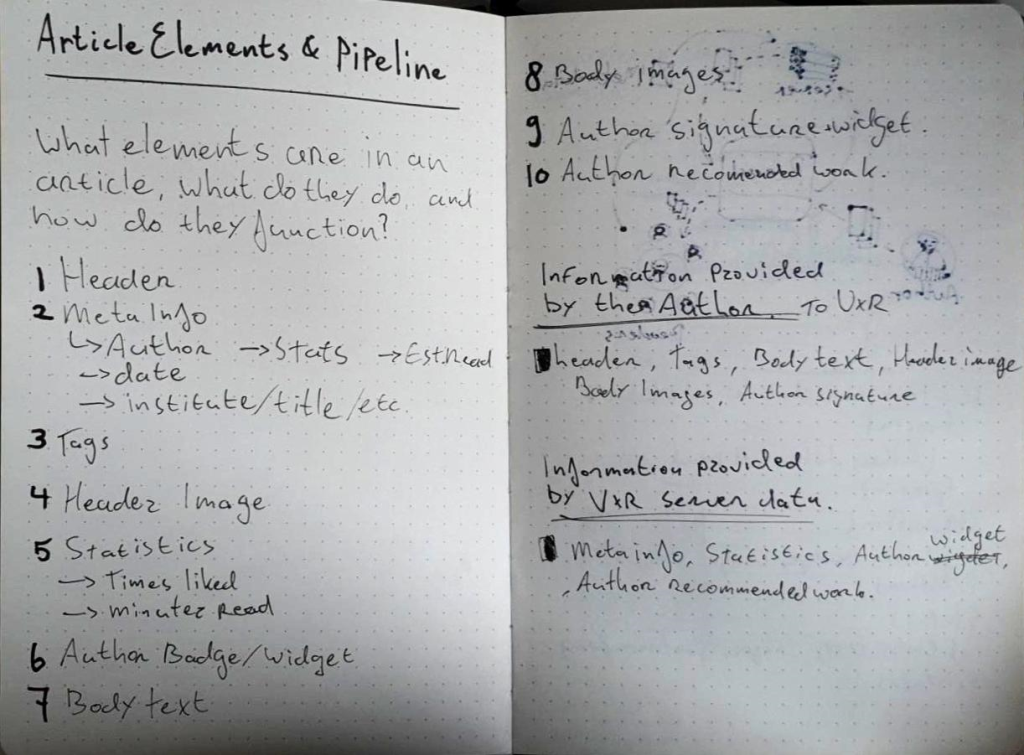 Article Elements & Pipeline
What elements are in an
article, what do they do, and
how do they function?
1 Header
2 Meta Info
↳ Author → Stats → Est Read
→ date
→ institute/title/etc.
3 Tags
4 Header Image
5 Statistics
→ Times liked
→ minutez Read
6 Author Badge/Widget
7 Body text
8 Body images
9 Author signature widget.
10 Author recomended work.
Information Provided
by the Author. To VxR
header, Tags, Body text, Header image
Body Images, Author signature
Information provided
by VxR server data.
widget
Meta info, Statistics, Author wigdet,
, Author recommended work.